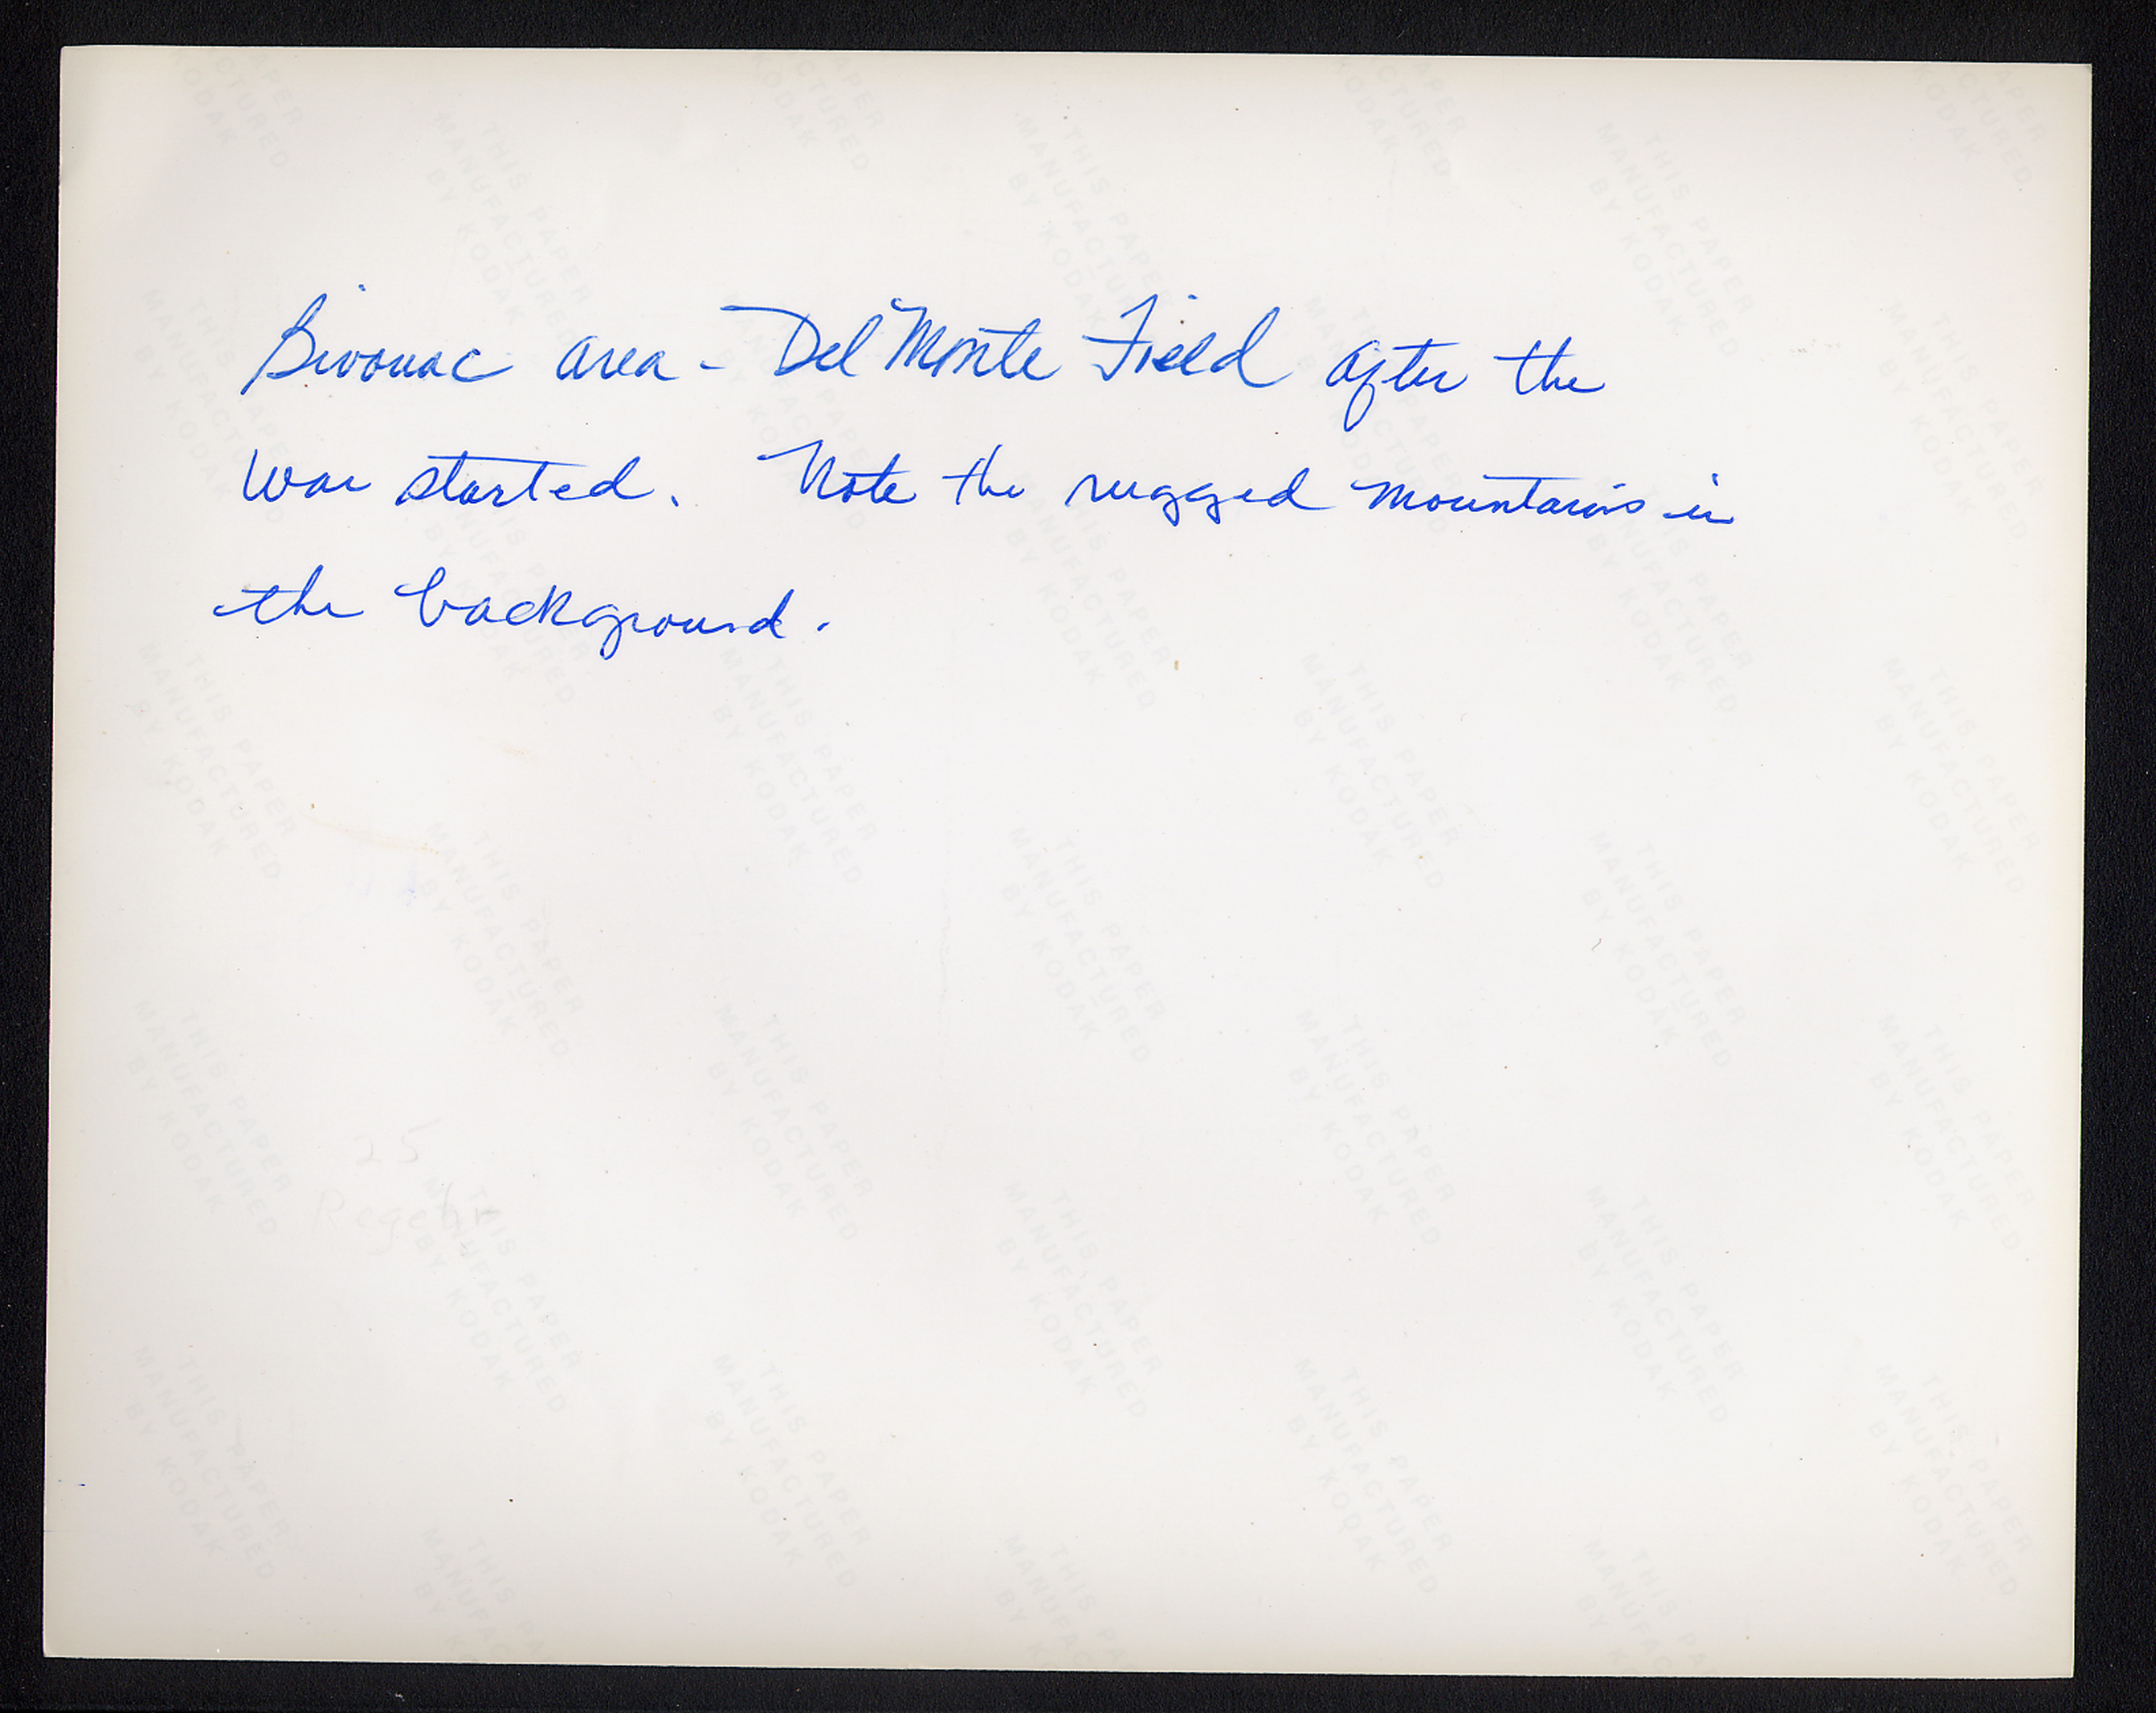 Bivouac area - Del Monte Field after the
war started. Note the rugged mountains in
the background.
25
THIS PAPER
MANUFACTURED
BY KODAK